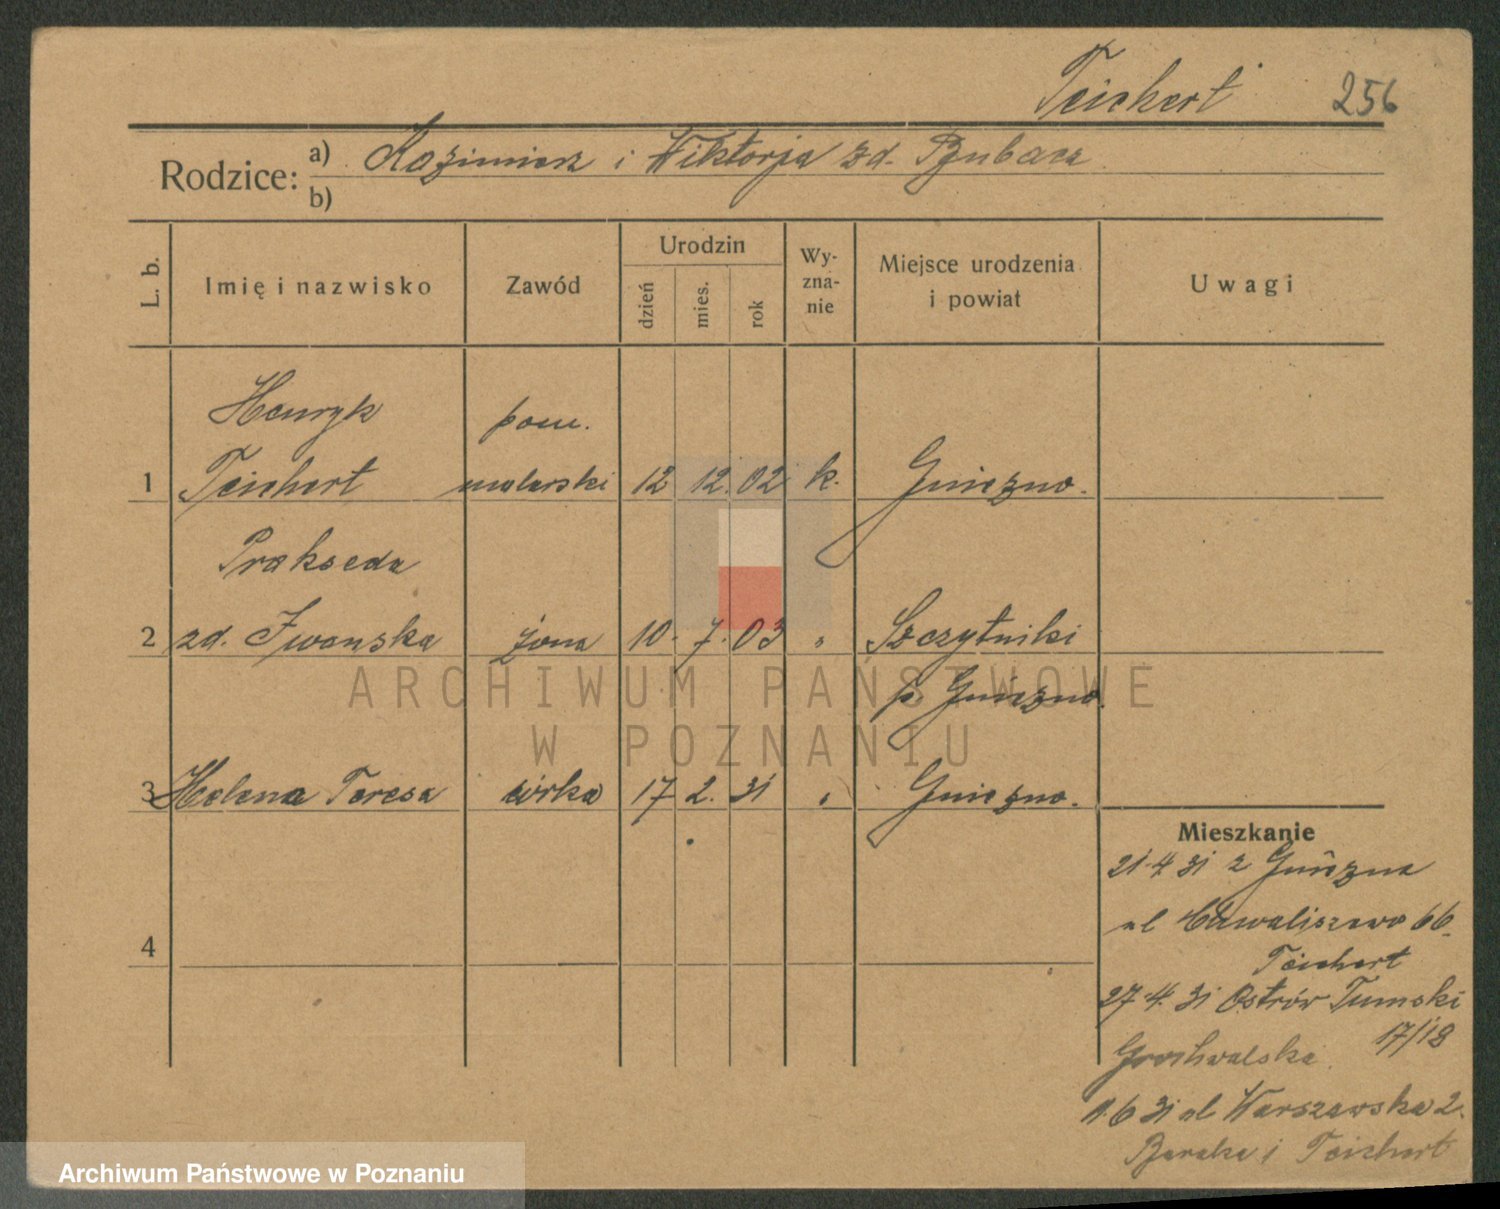 Teichert 256
Rodzice: a) Kazimierz i Wiktorja zd.
b)
L. b. Imię i nazwisko Zawód Urodzin dzień mies. rok Wyznanie Miejsce urodzenia i powiat Uwagi
Henryk pom.
1 Teichert malarski 12 12. 02 k. Gniezno.
Prakseda
2 zd. Iwanska żona 10. 7. 03 " Szczytniki
p. Gniezno.
3 Helena Teresa córka 17 2. 31 " Gniezno.
Mieszkanie
21.4 31 z Gniezna
ul Chwaliszewo 66.
Teichert
4
27.4. 31 Ostrów Tumski
17/18
1.6 31 ul Warszawska 2.
Baraka i Teichert
ARCHIWUM PAŃSTWOWE
W POZNANIU
Archiwum Państwowe w Poznaniu